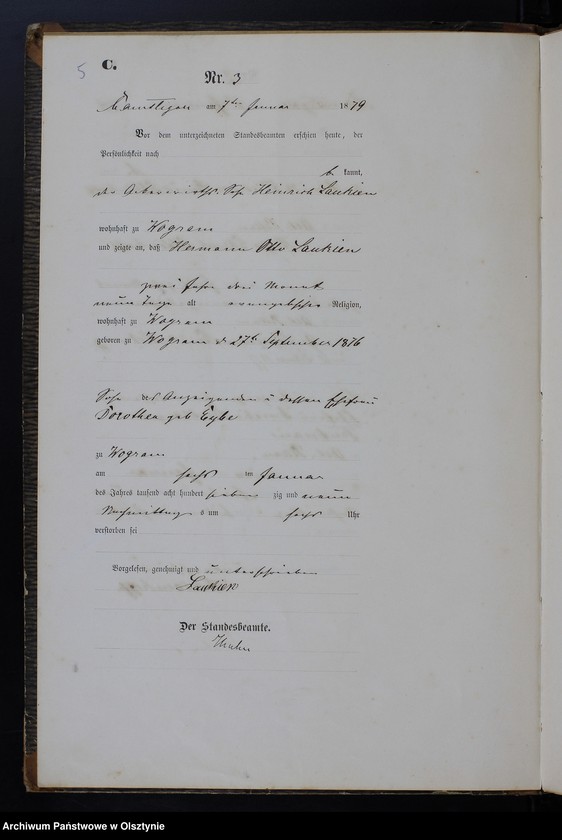 5
C.
Nr. 3
am 7ten Januar 1879
Vor dem unterzeichneten Standesbeamten erschien heute, der
Persönlichkeit nach
be kannt,
der Heinrich Laukien
wohnhaft zu Wogram
und zeigte an, daß Hermann Otto Laukien
zwei Jahr drei Monat
neun Tage alt evangelischer Religion,
wohnhaft zu Wogram
geboren zu Wogram d 27t September 1876
Sohn des Anzeigenden u dessen Ehefrau
Dorothea geb
zu Wogram
am sechs ten Januar
des Jahres tausend acht hundert sieben zig und neun
Nachmittag s um sechs Uhr
verstorben sei
Vorgelesen, genehmigt und unterschrieben
Laukien
Der Standesbeamte.
Archiwum Państwowe w Olsztynie